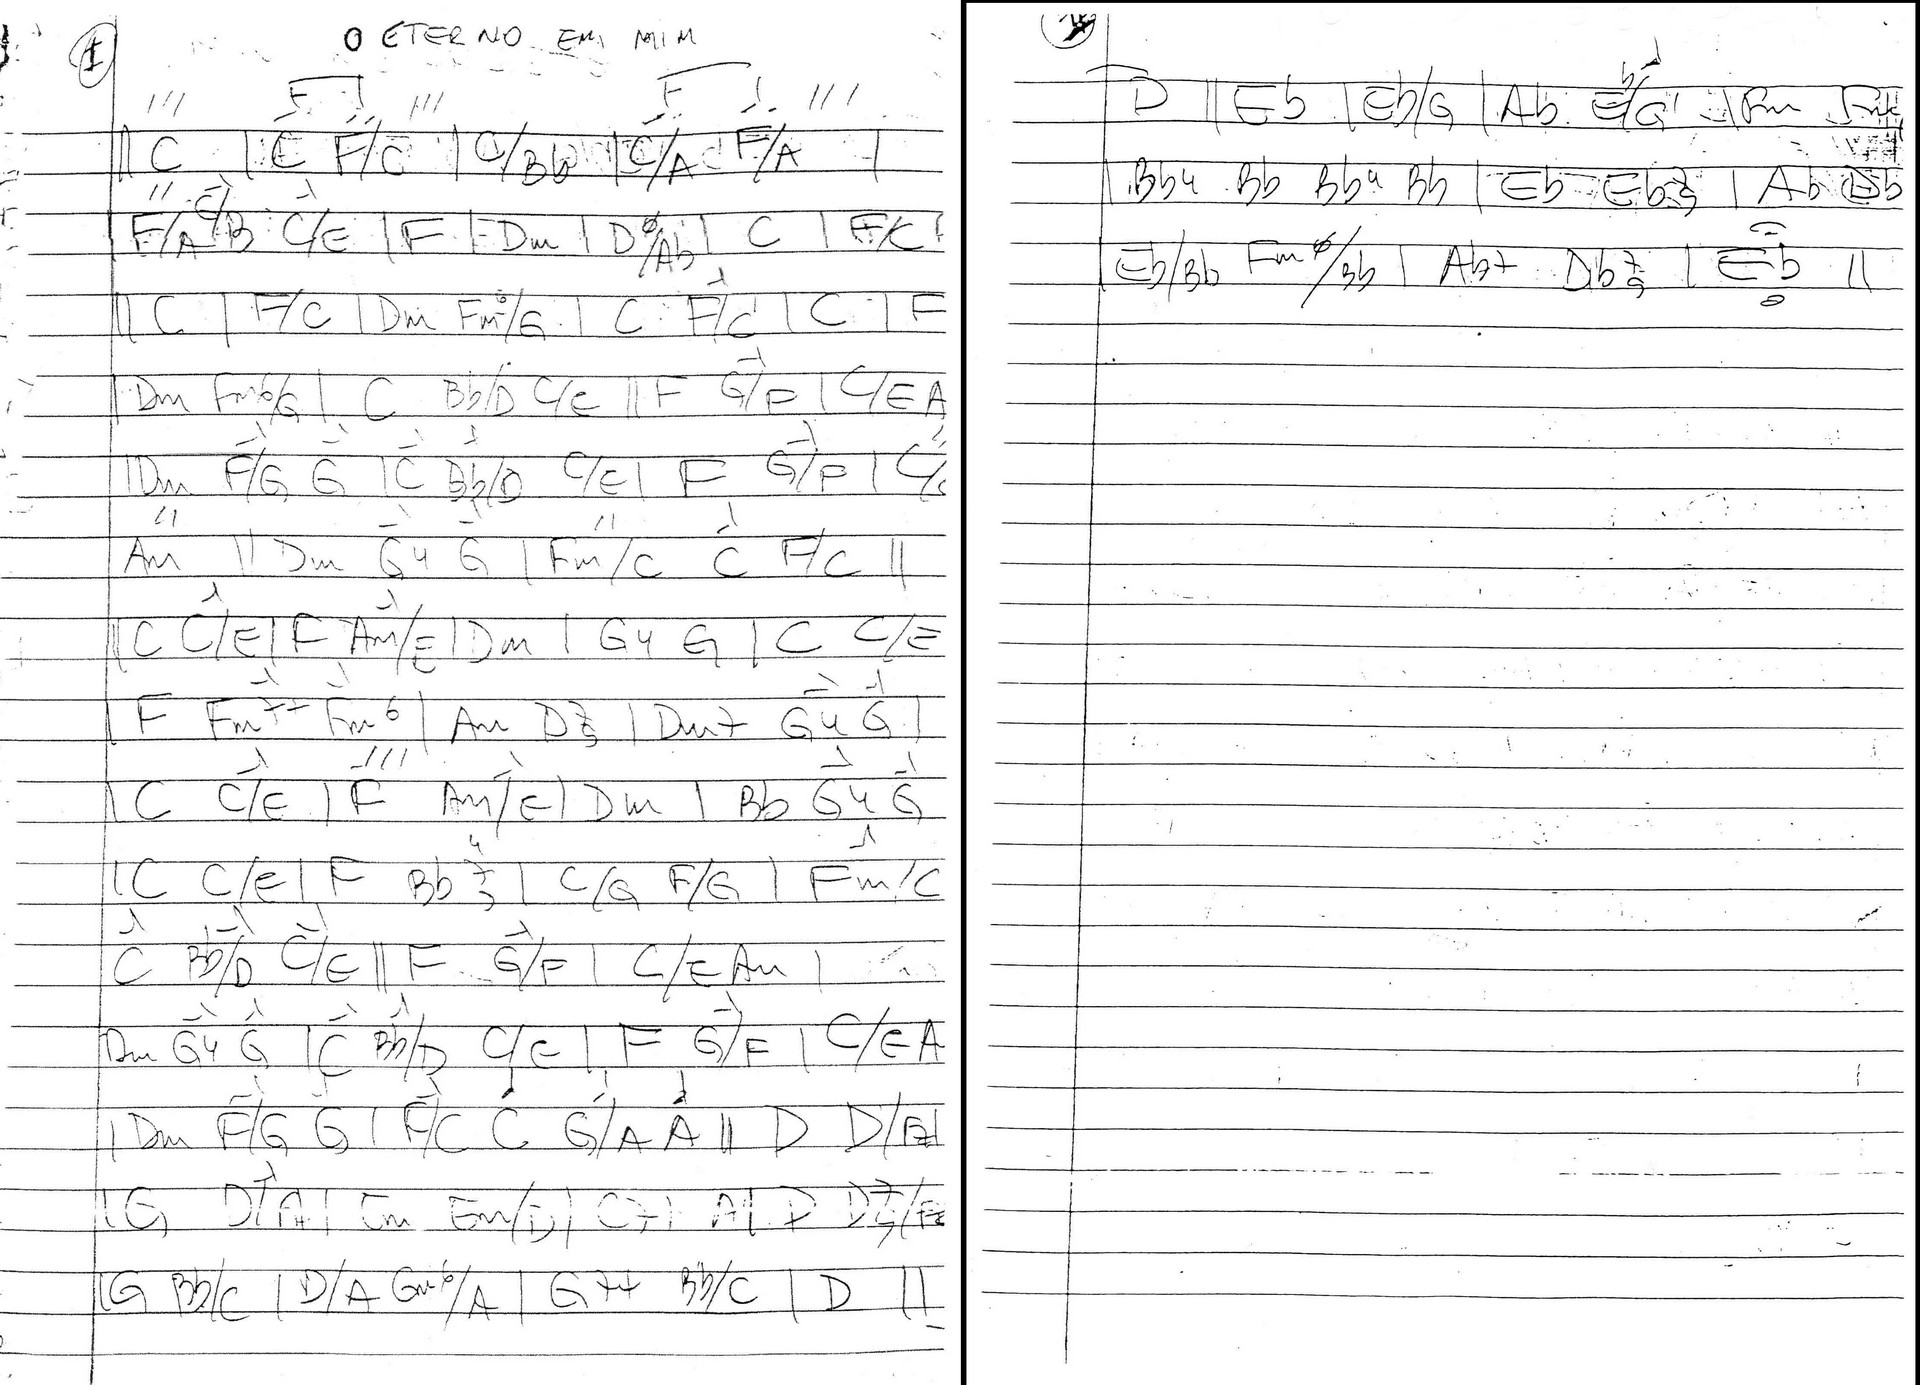 1
O ETERNO EM MIM
F F
|| C | C F/C | C/Bb | C/A F/A |
F/A C/B C/E | F | Dm | Dø/Ab | C | F/C |
|| C | F/C | Dm Fm6/G | C F/C | C | F
| Dm Fm6/G | C Bb/D C/E || F G/F | C/E A
| Dm F/G G | C Bb/D C/E | F G/F | C/
Am || Dm G4 G | Fm/C C F/C ||
|| C C/E | F Am/E | Dm | G4 G | C C/E
| F Fm7+ Fm6 | Am D79 | Dm7 G4 G |
| C C/E | F Am/E | Dm | Bb G4 G
| C C/E | F Bb 4 7 9 | C/G F/G | Fm/C
C Bb/D C/E || F G/F | C/E Am |
Dm G4 G | C Bb/D C/E | F G/F | C/E A
| Dm F/G G | F/C C G/A A || D D/F#
| G D/A | Em Em/D | C7+ | A | D D79/F#
| G Bb/C | D/A Gm6/A | G7+ Bb/C | D ||
D || Eb | Eb/G | Ab Eb/G | Fm
| Bb4 Bb Bb4 Bb | Eb Eb79 | Ab Db
| Eb/Bb Fmø/Bb | Ab7+ Db79 | Eb ||